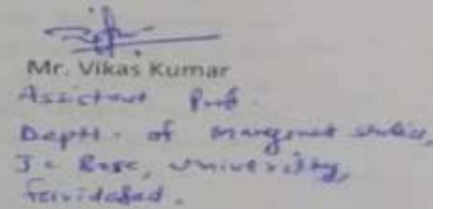 Mr. Vikas Kumar
Assistant Prof.
Deptt. of Mangment studies,
J C Bose, University,
Faridabad.